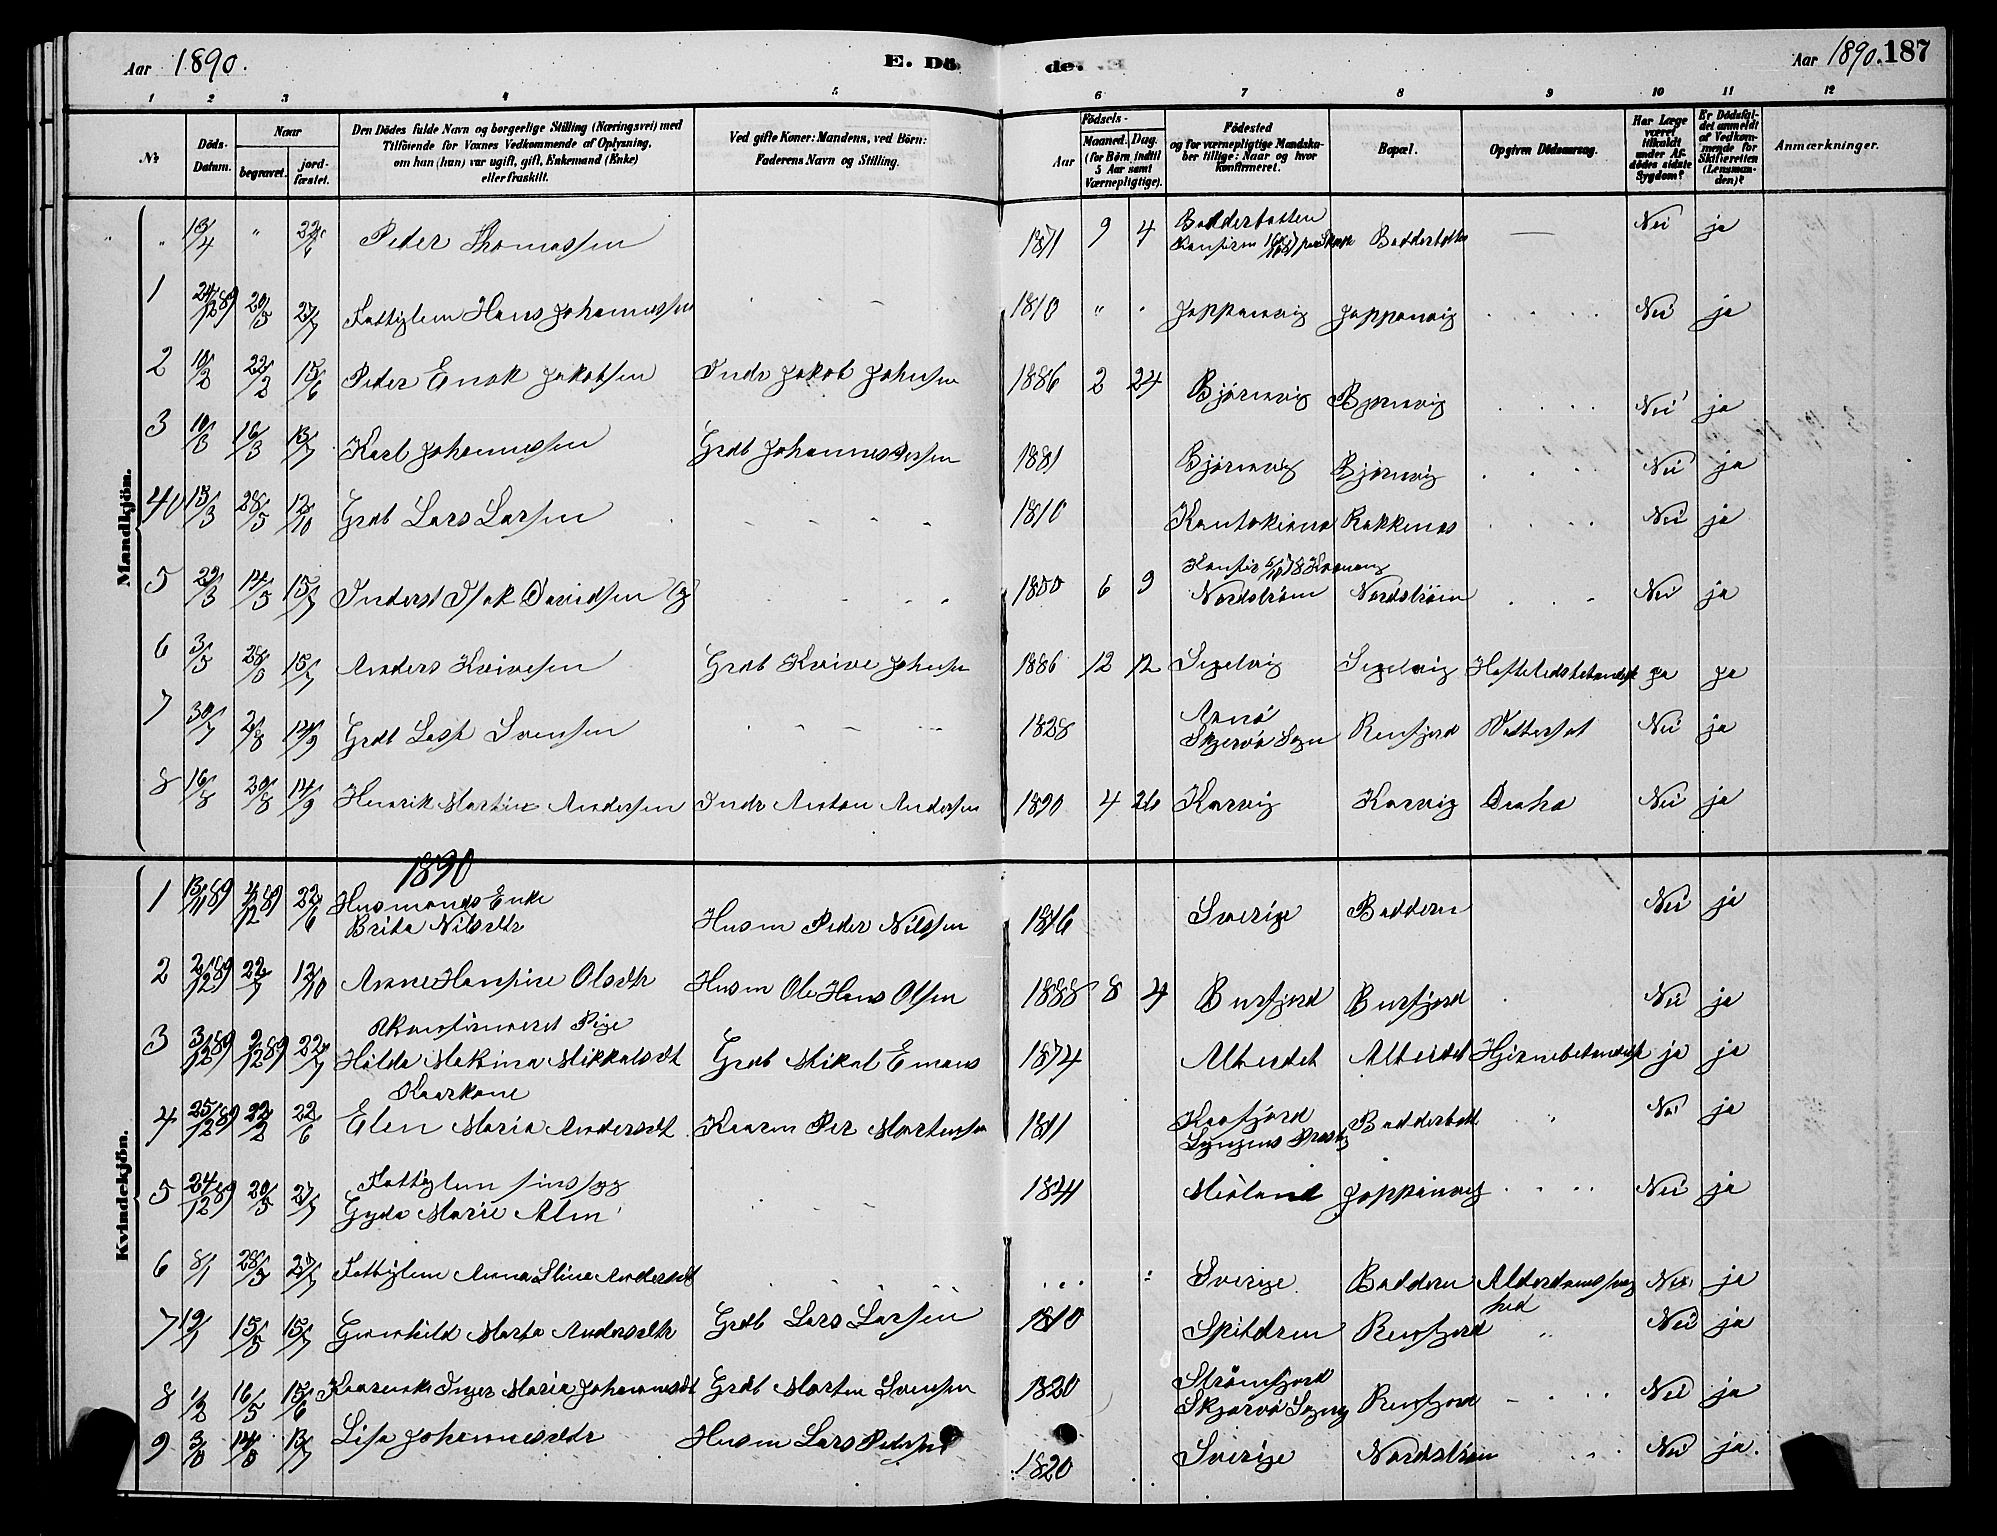 Aar 1890.
E. Dö de.
Aar 1890. 187
1 2 3 4 5 6 7 8 9 10 11 12
No
Döds-Datum.
Naar
begravet.
jordfæstet.
Den Dödes fulde Navn og borgerlige Stilling (Næringsvei) med
Tilföiende for Voxnes Vedkommende af Oplysning,
om han (hun) var ugift, gift, Enkemand (Enke)
eller fraskilt.
Ved gifte Koner: Mandens, ved Börn:
Faderens Navn og Stilling.
Födsels-
Aar
Maaned. Dag.
(for Börn indtil
5 Aar samt
Værnepligtige).
Födested
og for værnepligtige Mandska-
ber tillige: Naar og hvor
konfirmeret.
Bopæl.
Opgiven Dödsaarsag.
Har Læge
været
tilkaldt
under Af-
dödes sidste
Sygdom?
Er Dödsfal-
det anmeldt
af Vedkom-
mende for
Skifteretten
(Lensman-
den)?
Anmærkninger.
Mandkjön.
" " 13/4 " 22/6 Peder Thomassen 1871 9 4 Badderbotten Badderbotten — Nei ja
1 24/12 89 20/5 27/7 Fattiglem Hans Johannessen 1810 " " Joppanvig Joppanvig Nei ja
2 10/2 22/2 15/6 Peder Enok Jakobsen Inds Jakob Johnsen 1886 2 24 Bjørnvig Bjørnvig Nei ja
3 10/3 16/3 13/7 Karl Johannessen Grdb Johannes Persen 1881 Bjørnvig Bjørnvig Nei ja
40 13/3 28/5 12/10 Grdb Lars Larsen 1810 Kautokeino Rakkenes Nei ja
5 22/3 14/5 15/7 Inderst Isak Davidsen Ug 1850 6 9 Nordstrøm Nordstrøm Nei ja
6 3/5 28/8 15/7 Anders Kvivesen Grdb Kvive Johnsen 1886 12 12 Segelvig Segelvig Hofteledsbetændelse ja ja
7 30/7 2/8 14/9 Grdb Lass Svensen 1828 Arnø
Skjervø Sogn Rensfjord Vattersot Nei ja
8 16/8 30/8 14/9 Henrik Martin Andersen Inds Anton Andersen 1890 4 26 Karvig Karvig Nei ja
1890
Kvindekjön.
1 13/11 89 4/12 89 22/6 Husmands Enke
Brita Nilsdtr Husm Peder Nilssen 1816 Sverige Baddern Nei ja
2 2/12 89 22/7 12/10 Anne Hansine Olsdtr Husm Ole Hans Olsen 1888 8 4 Bursfjord Bursfjord Nei ja
3 3/12 89 9/12 89 22/7 Ukonfirmeret Pige
Hilda Makrina Mikkalsdt Grdb Mikal Emans 1874 Alteidet Alteidet Hjernebetændelse ja ja
4 25/12 89 22/2 22/6 Kaarkone
Elen Maria Andersdt Kaarm Per Mortensen 1811 Kaafjord
Lyngens Badderbotten " Nei ja
5 24/12 89 20/5 27/7 Fattiglem sindssyg
Gyda Marie Alm 1844 Joppanvig Nei ja
6 8/1 28/5 27/7 Fattiglem Anna Stina Andersdt Sverige Baddern Alderdomssvaghed Nei ja
7 19/1 15/5 15/7 Gunnhild Marta Andersdtr Grdb Lars Larsen 1810 Spildren Rensfjord " Nei ja
8 1/2 16/5 15/6 Inger Maria Johannesdt Grdb Morten Svensen 1820 Strømfjord
Skjervø Sogn Rensfjord Nei ja
9 3/8 14/8 13/7 Lisa Johannesdtr Husm Lars Pedersen 1820 Sverige Nordstrøm Nei ja.